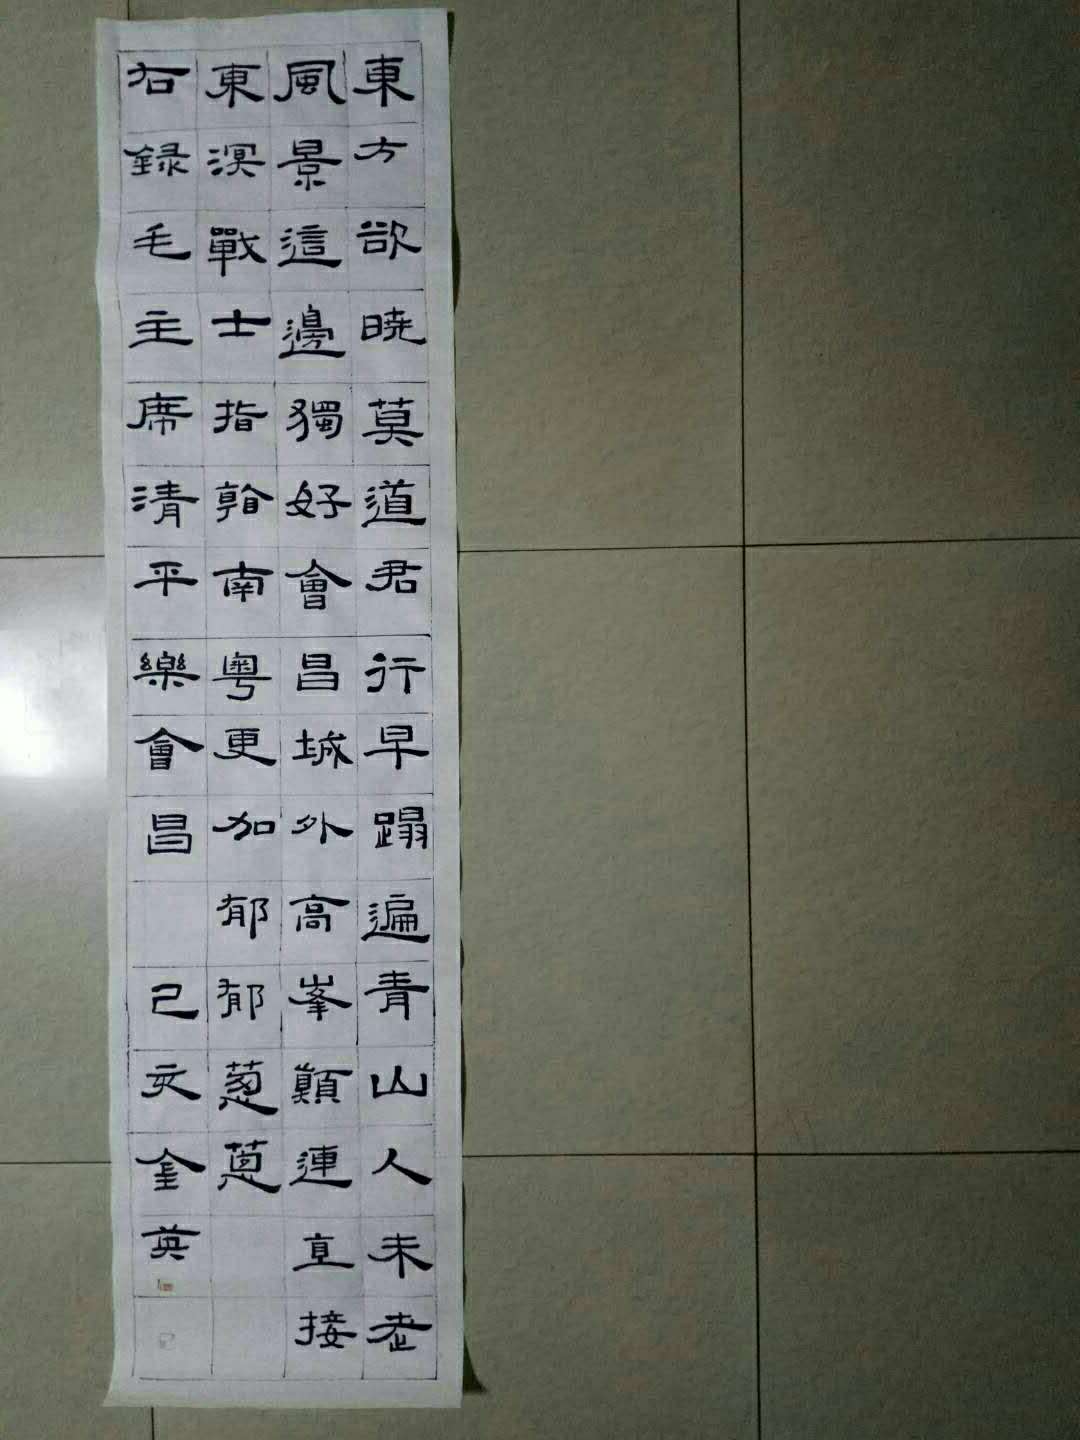 東方欲曉莫道君行早蹋遍青山人未老
風景這邊獨好會昌城外高峯顛連直接
東溟戰士指看南粵更加郁郁蔥蔥
右録毛主席清平樂會昌 己亥金英